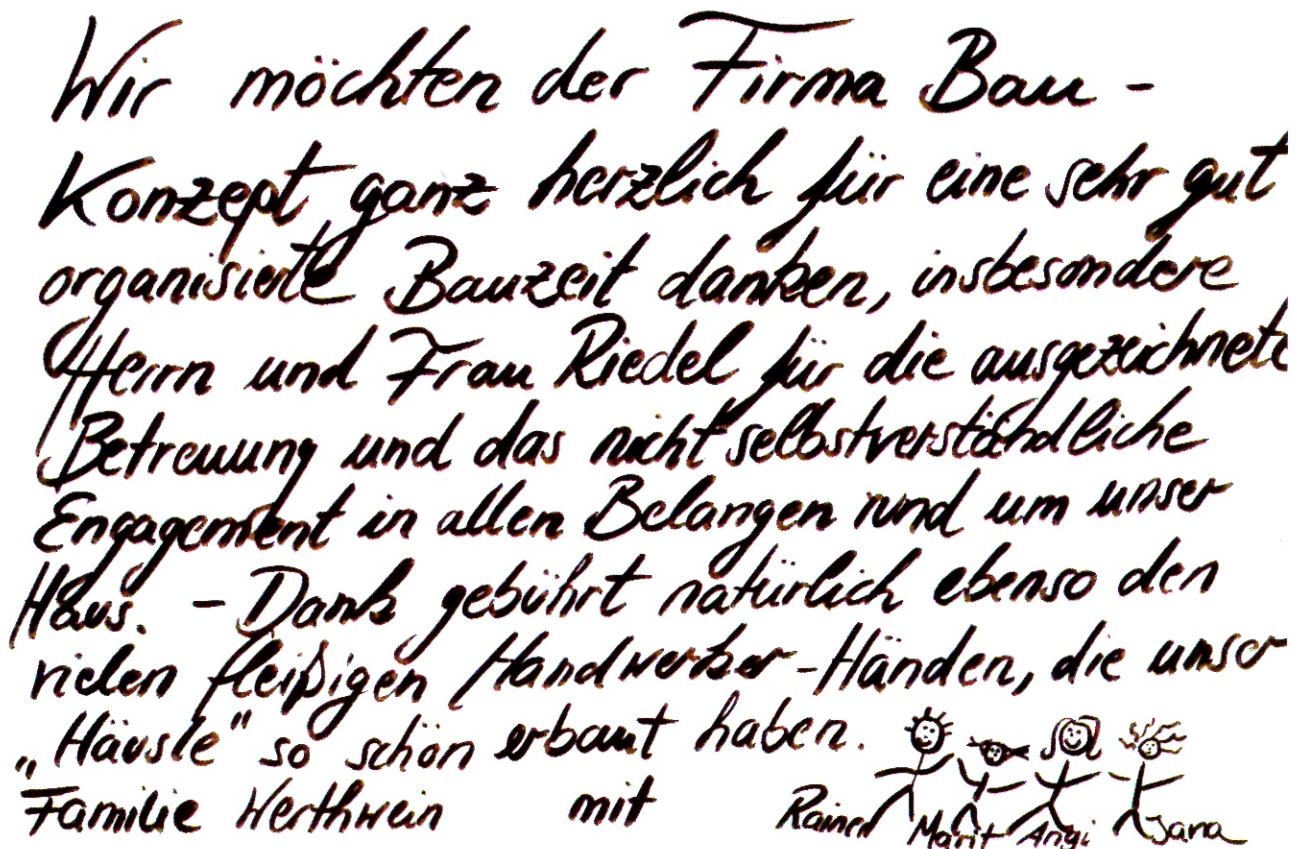 Wir möchten der Firma Bau-
Konzept ganz herzlich für eine sehr gut
organisierte Bauzeit danken, insbesondere
Herrn und Frau Riedel für die ausgezeichnete
Betreuung und das nicht selbstverständliche
Engagement in allen Belangen rund um unser
Haus. - Dank gebührt natürlich ebenso den
vielen fleißigen Handwerker-Händen, die unser
„Häusle" so schön erbaut haben.
Familie Werthwein mit Rainer Marit Angi Jana